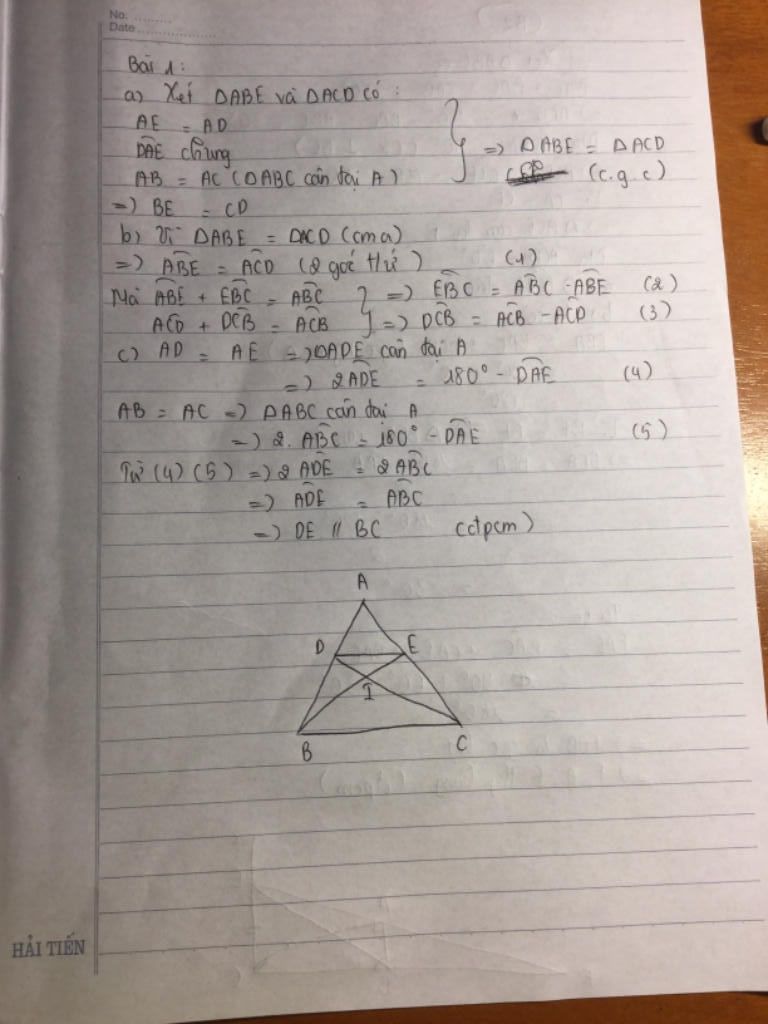 No. ..........
Date ....................
Bài 1:
a) Xét ΔABE và ΔACD có:
AE = AD
D̂AE chung
AB = AC (ΔABC cân tại A)
} => ΔABE = ΔACD
(c.g.c)
=> BE = CD
b) Vì ΔABE = ΔACD (cma)
=> ÂBE = ÂCD (2 góc t/ứ) (1)
Mà ÂBE + ÊBC = ÂBC } => ÊBC = ÂBC - ÂBE (2)
ÂCD + D̂CB = ÂCB } => D̂CB = ÂCB - ÂCD (3)
c) AD = AE => ΔADE cân tại A
=> 2ÂDE = 180° - D̂AE (4)
AB = AC => ΔABC cân tại A
=> 2.ÂBC = 180° - D̂AE (5)
Từ (4) (5) => 2ÂDE = 2ÂBC
=> ÂDE = ÂBC
=> DE // BC (đpcm)
A
D E
I
B C
HẢI TIẾN